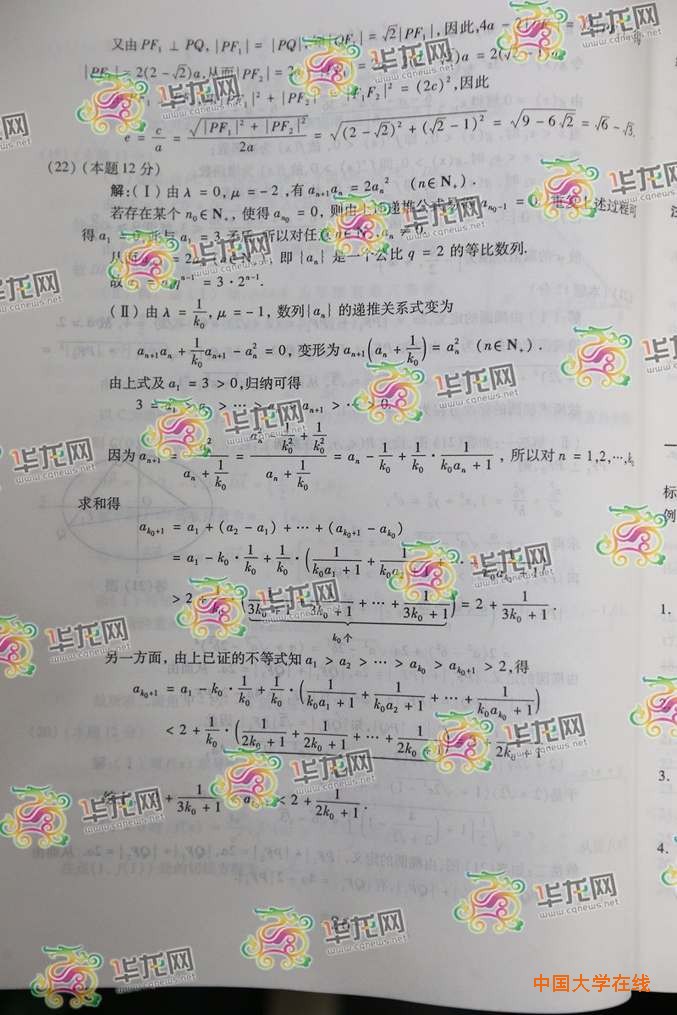 又由 PF₁ ⊥ PQ, |PF₁| = |PQ|, |QF₁| = √2|PF₁|, 因此, 4a -
= 2(2 - √2)a, 从而|PF₂| = 2a = 2(√2 - 1)a.
|PF₁|² + |PF₂|² = |F₁F₂|² = (2c)², 因此
e = c/a = √(|PF₁|² + |PF₂|²)/2a = √((2 - √2)² + (√2 - 1)²) = √(9 - 6√2) = √6 - √3.
(22) (本题12分)
解: (Ⅰ) 由 λ = 0, μ = -2, 有 aₙ₊₁aₙ = 2aₙ² (n∈N₊).
若存在某个 n₀∈N₊, 使得 aₙ₀ = 0, 则由上述递推公式 aₙ₀₋₁ = 0, 上述过程可
得 a₁ = 0, 此与 a₁ = 3 矛盾, 所以对任 aₙ ≠ 0.
即 {aₙ} 是一个公比 q = 2 的等比数列.
故 = 3·2ⁿ⁻¹.
(Ⅱ) 由 λ = 1/k₀, μ = -1, 数列{aₙ} 的递推关系式变为
aₙ₊₁aₙ + 1/k₀ aₙ₊₁ - aₙ² = 0, 变形为 aₙ₊₁(aₙ + 1/k₀) = aₙ² (n∈N₊).
由上式及 a₁ = 3 > 0, 归纳可得
3 = a₁ > a₂ > ⋯ > aₙ > aₙ₊₁ > ⋯ > 0.
因为 aₙ₊₁ = aₙ²/(aₙ + 1/k₀) = (aₙ² - 1/k₀² + 1/k₀²)/(aₙ + 1/k₀) = aₙ - 1/k₀ + 1/k₀ · 1/(k₀aₙ + 1), 所以对 n = 1,2,⋯,k₀
求和得
aₖ₀₊₁ = a₁ + (a₂ - a₁) + ⋯ + (aₖ₀₊₁ - aₖ₀)
= a₁ - k₀ · 1/k₀ + 1/k₀ · (1/(k₀a₁ + 1) + 1/(k₀a₂ + 1) + ⋯ + 1/(k₀aₖ₀ + 1))
> 2 + 1/k₀ · (1/(3k₀ + 1) + 1/(3k₀ + 1) + ⋯ + 1/(3k₀ + 1)) = 2 + 1/(3k₀ + 1).
k₀个
另一方面, 由上已证的不等式知 a₁ > a₂ > ⋯ > aₖ₀ > aₖ₀₊₁ > 2, 得
aₖ₀₊₁ = a₁ - k₀ · 1/k₀ + 1/k₀ · (1/(k₀a₁ + 1) + 1/(k₀a₂ + 1) + ⋯ + 1/(k₀aₖ₀ + 1))
< 2 + 1/k₀ · (1/(2k₀ + 1) + 1/(2k₀ + 1) + ⋯ + 1/(2k₀ + 1)) = 2 + 1/(2k₀ + 1).
+ 1/(3k₀ + 1) < a < 2 + 1/(2k₀ + 1).
标
例
1.
3.
4.
华龙网
www.cqnews.net
中国大学在线